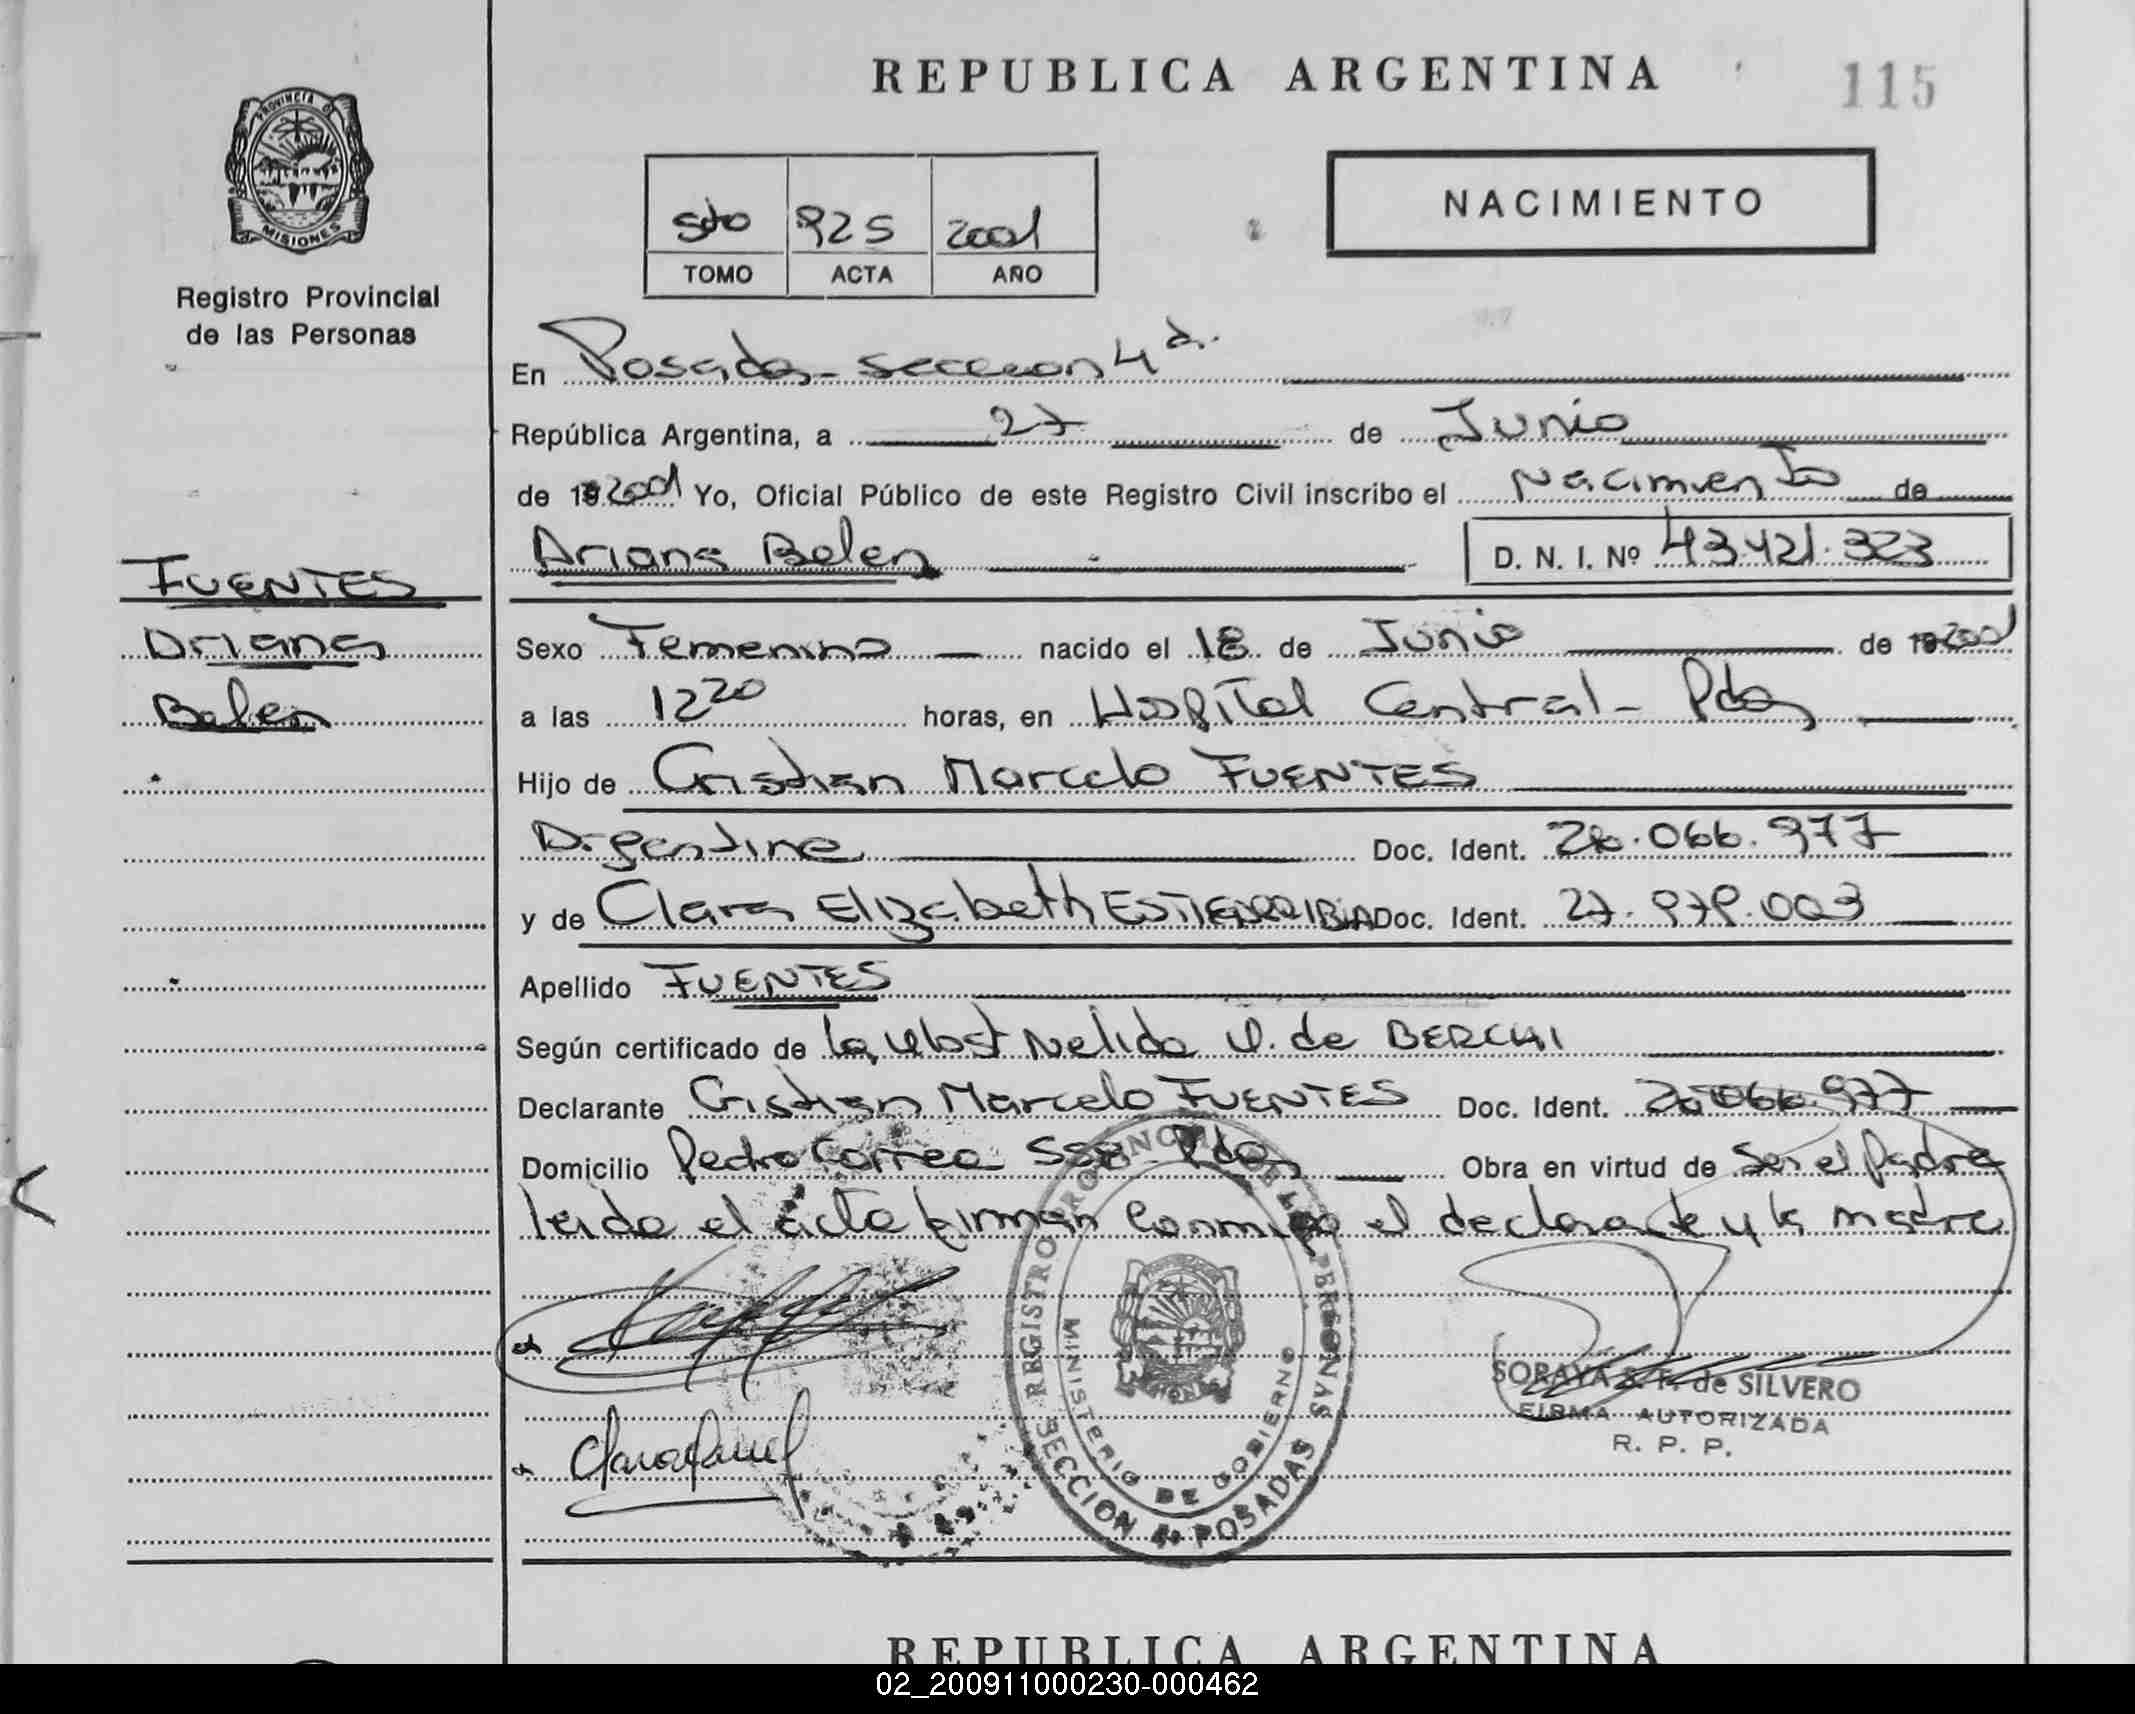 REPUBLICA ARGENTINA
115
PROVINCIA DE
MISIONES
Registro Provincial
de las Personas
NACIMIENTO
5to 925 2001
TOMO ACTA AÑO
En Posadas - seccion 4a.
República Argentina, a 27 de Junio
de 19 2001 Yo, Oficial Público de este Registro Civil inscribo el Nacimiento de
Ariana Belen D. N. I. Nº 43.421.323
FUENTES
Ariana
Belen
Sexo Femenino nacido el 18 de Junio de 19 2001
a las 12 20 horas, en Hospital Central - Pdas
Hijo de Cristian Marcelo FUENTES
Argentina Doc. Ident. 26.066.977
y de Clara Elizabeth ESTIGARRIBIA Doc. Ident. 27.979.003
Apellido FUENTES
Según certificado de la Obst Nelida de BERCHI
Declarante Cristian Marcelo FUENTES Doc. Ident. 26.066.977
Domicilio Pedro Correa Pdas Obra en virtud de Ser el Padre
leida el acta firman conmigo el declarante y la madre
REGISTRO PROVINCIAL DE LAS PERSONAS
MINISTERIO DE GOBIERNO
SECCION 4a POSADAS
SORAYA S. F. de SILVERO
FIRMA AUTORIZADA
R. P. P.
REPUBLICA ARGENTINA
02_200911000230-000462